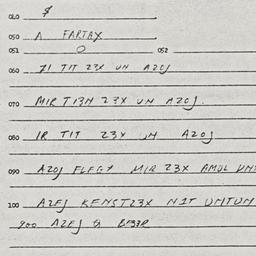 020 $
050 A FARTAX
051 0 052
060 71 TIT 23X UN AZOJ
070 MIR TIBN 23X UN AZOJ.
080 IR TIT 23X UN AZOJ
090 AZOJ FLEGX MIR 23X AMUL
100 AZEJ KENST23X NIT UMTUM
900 AZEJ &